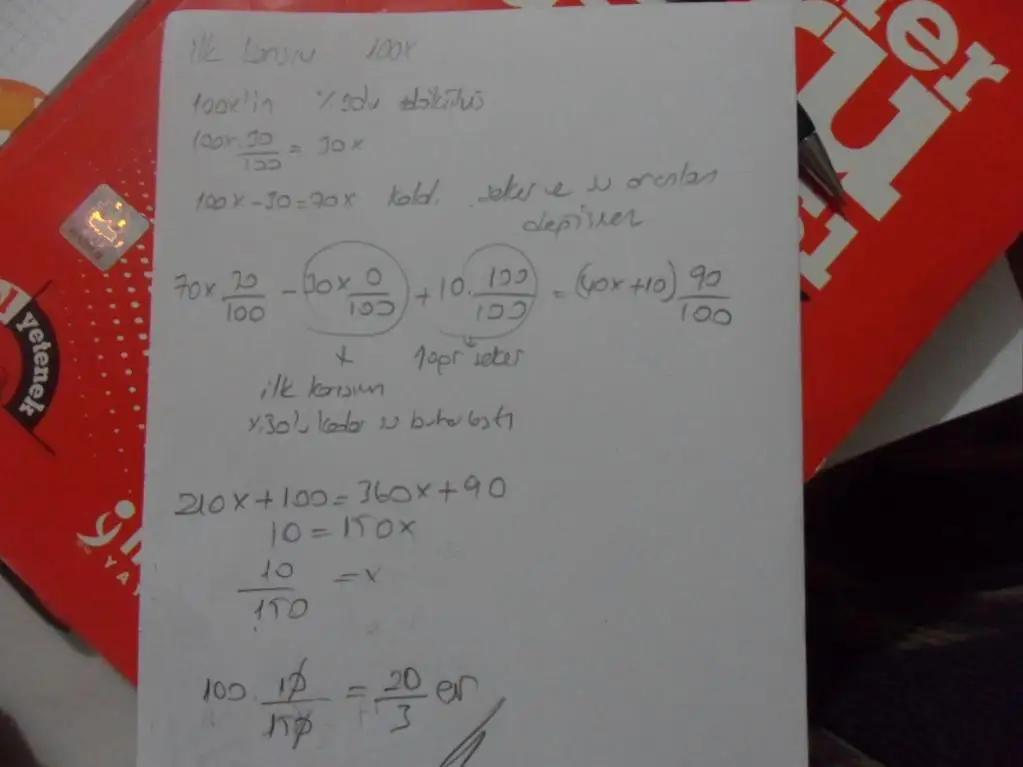 ilk karışım 100x
100x'in %30u dökülmüş
100x.30/100 = 30x
100x-30=70x kaldı. şeker ve su oranları
değişmez
70x 30/100 - 30x 0/100 + 10. 100/100 = (40x+10) 90/100
x 10gr şeker
ilk karışımın
%30'u kadar su buharlaştı
210x+100=360x+90
10=150x
10/150 =x
100. 10/150 = 20/3
yetenek
YA